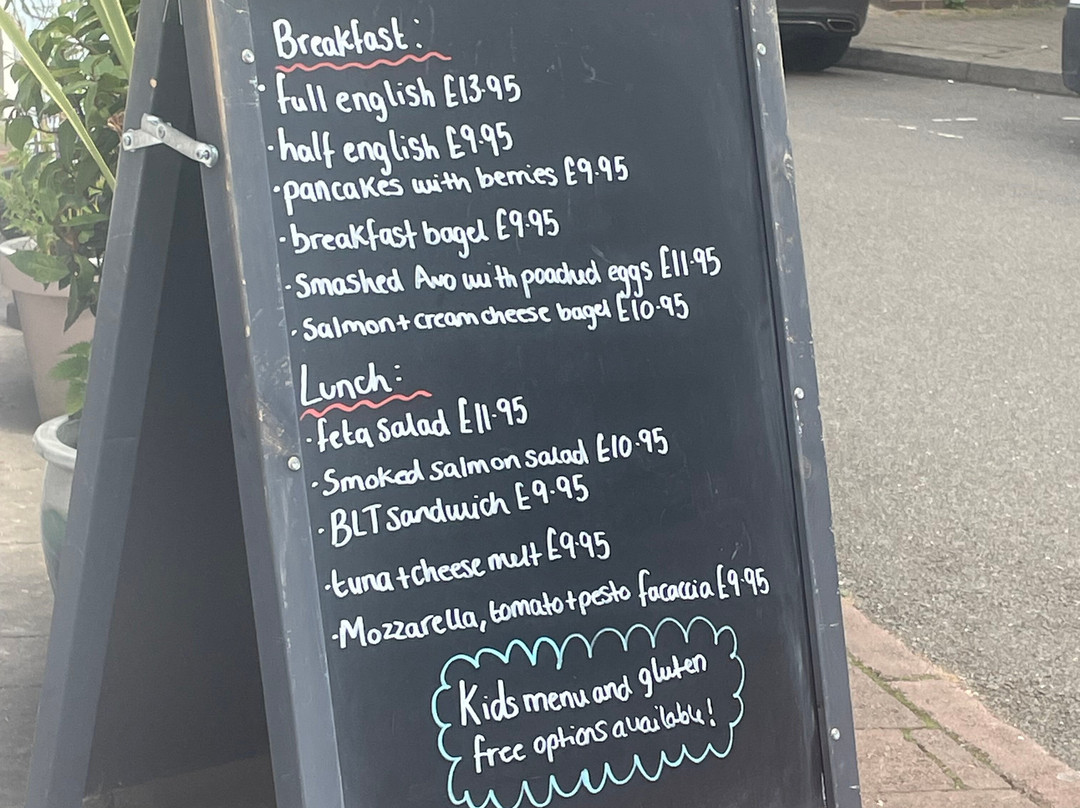 Breakfast:
· full english £13.95
· half english £9.95
· pancakes with berries £9.95
· breakfast bagel £9.95
· Smashed Avo with poached eggs £11.95
· Salmon + cream cheese bagel £10.95
Lunch:
· feta salad £11.95
· Smoked salmon salad £10.95
· BLT sandwich £9.95
· tuna + cheese melt £9.95
· Mozzarella, tomato + pesto facaccia £9.95
Kids menu and gluten
free options available!